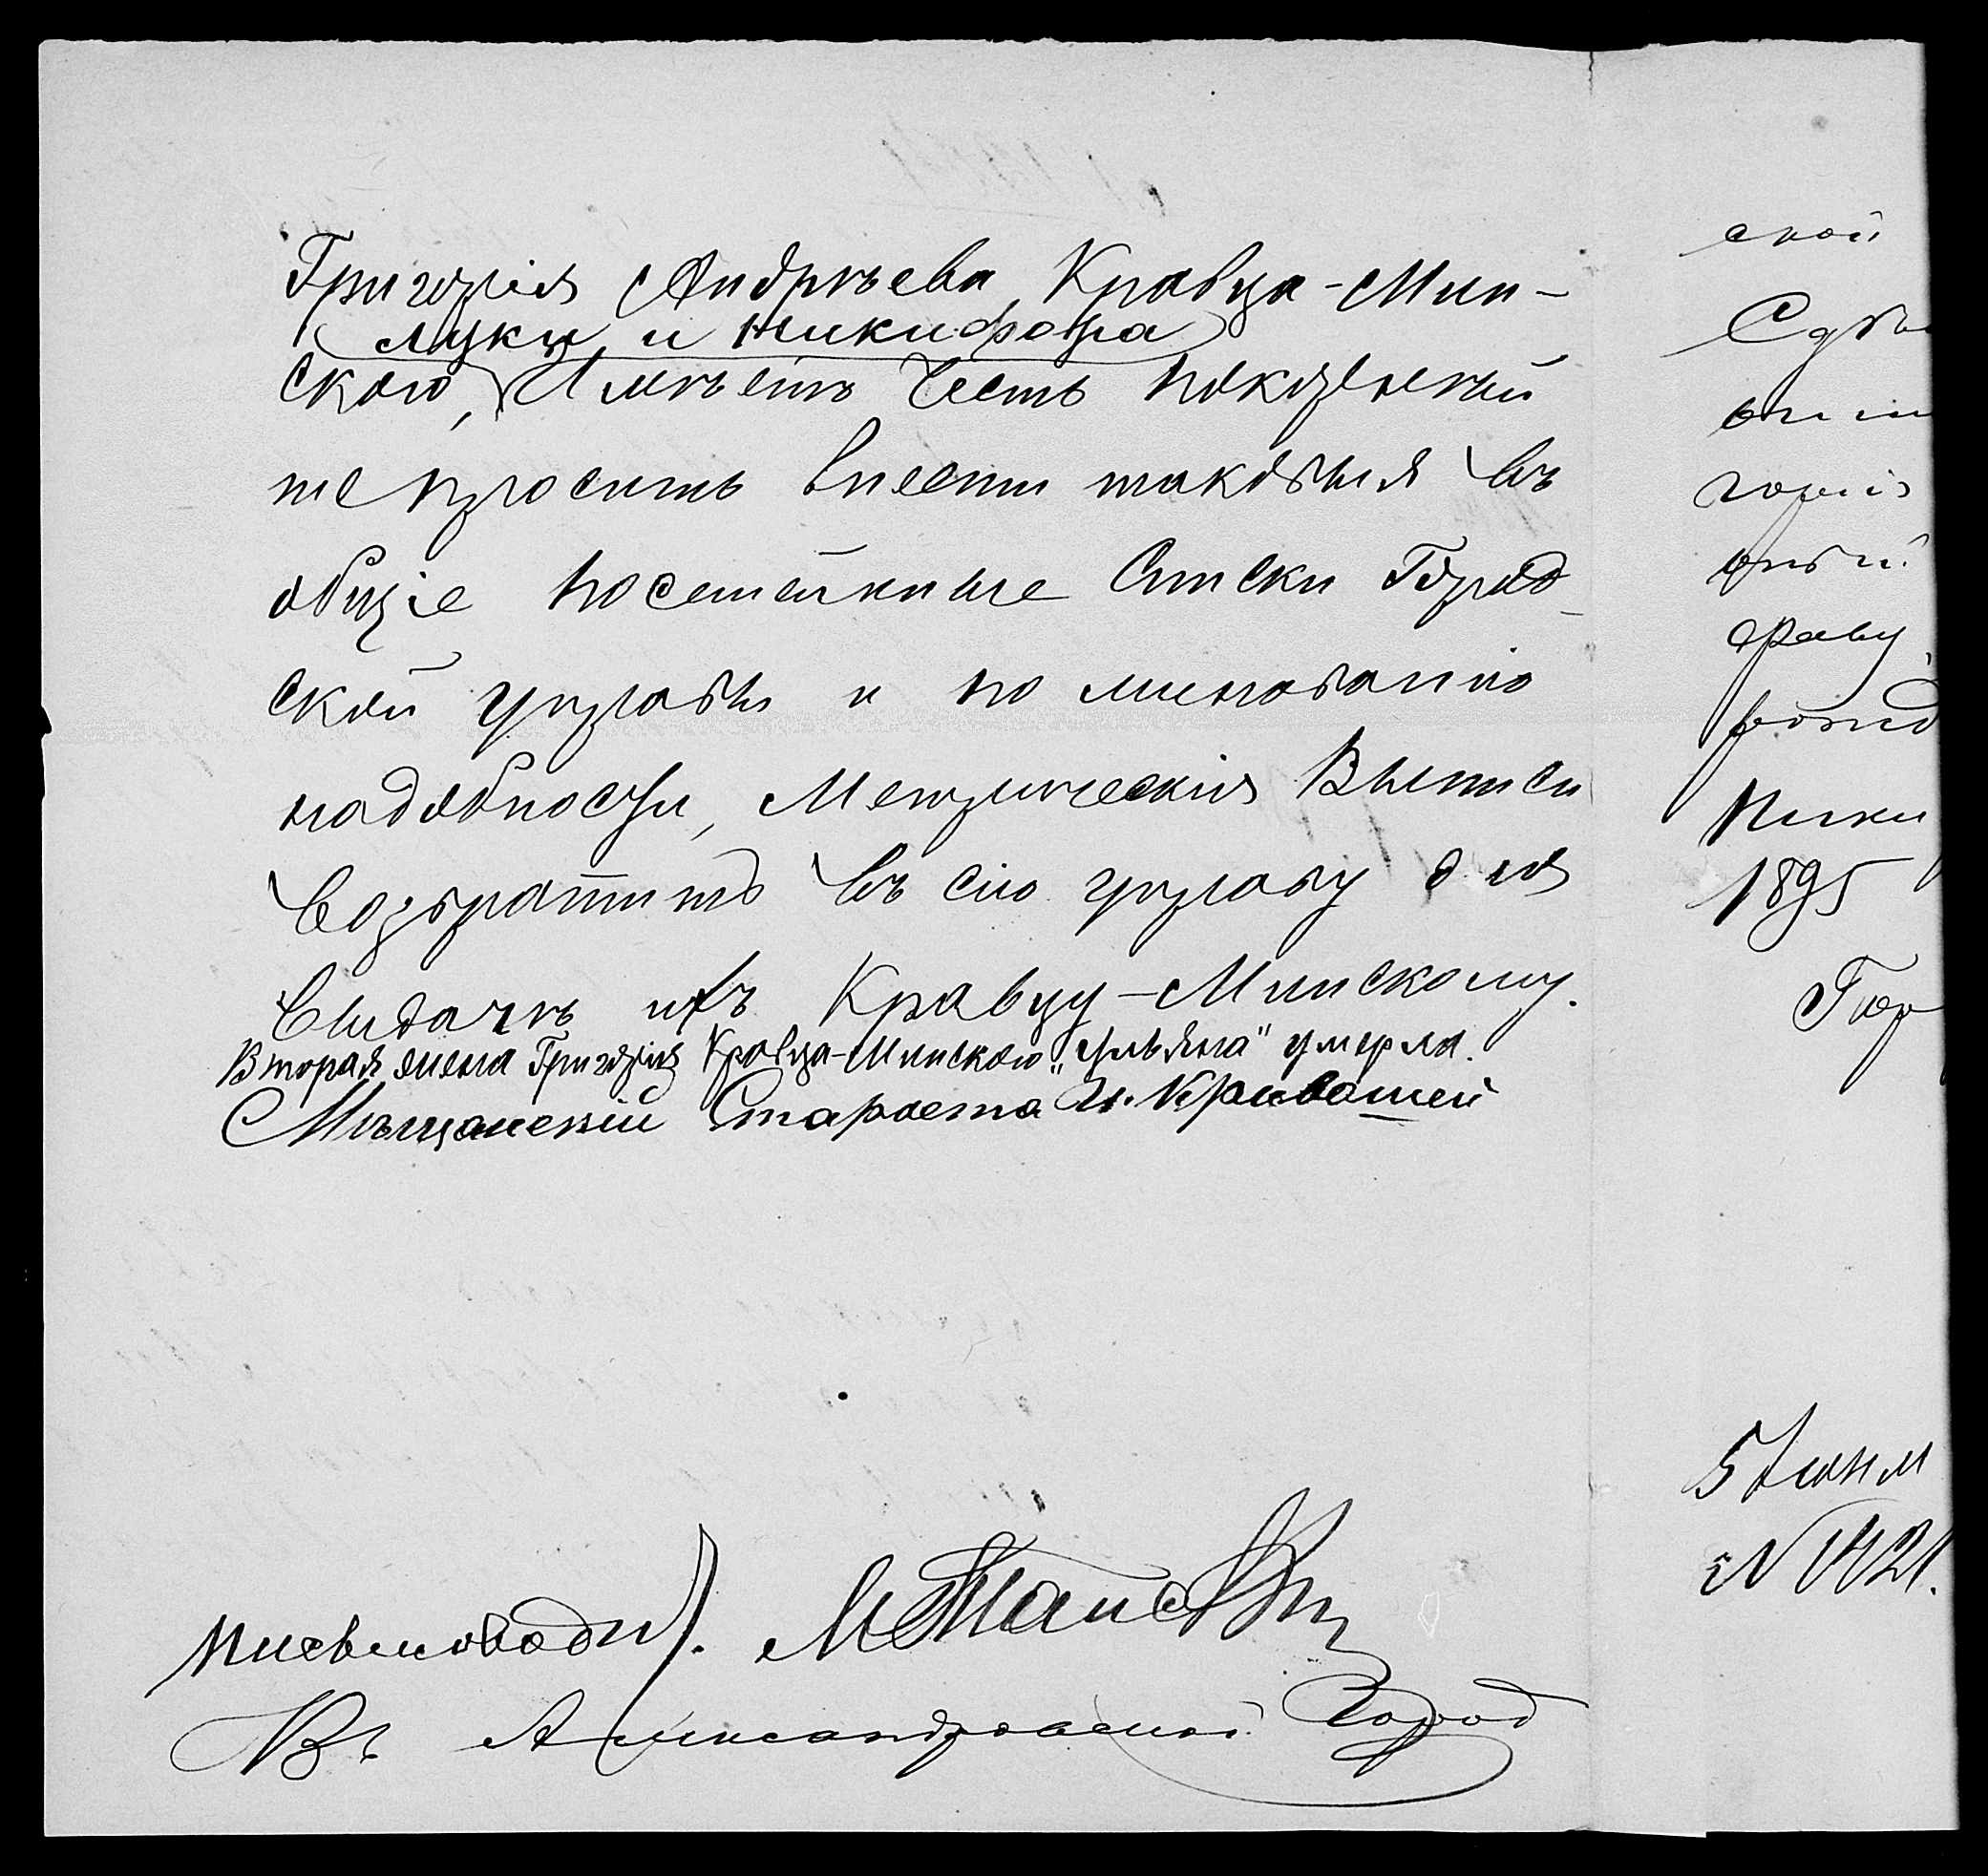 Григорія Андрѣева Кравца-Мин-
Луки и Никифора
ского, Имѣетъ Честь покорнѣй
ше просить внести таковыя въ
общіе посемейные Списки Город-
ской управы и по минованіи
надобности, Метрическія Выписи
возвратить въ сію управу для
выдачи ихъ Кравцу-Минскому.
Вторая жена Григорія Кравца-Минского „Ульяна" умерла.
Мѣщанскій Староста И. Кривошей
Письмовод.
Въ Александровской Город
ской
горія
управу
рожд
Ники
1895
Гор
5 Іюня
№ 1421.